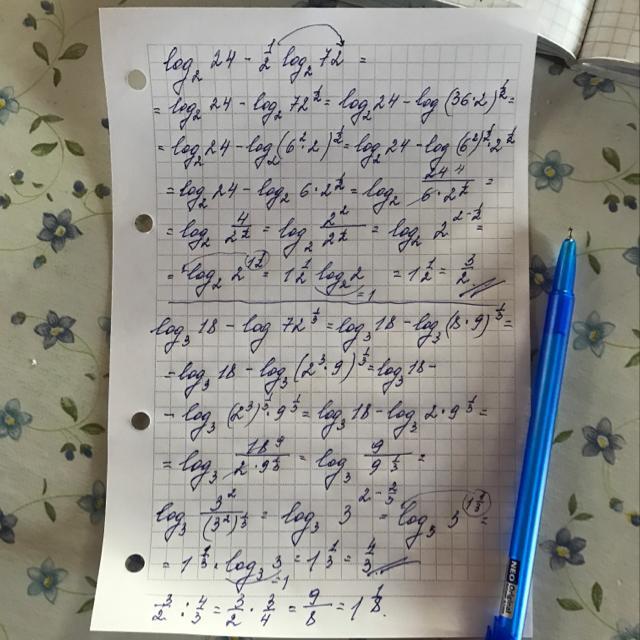 log₂ 24 - 1/2 log₂ 72 =
= log₂ 24 - log₂ 72^(1/2) = log₂ 24 - log (36·2)^(1/2) =
= log₂ 24 - log₂ (6²·2)^(1/2) = log₂ 24 - log (6²)^(1/2)·2^(1/2)
= log₂ 24 - log₂ 6·2^(1/2) = log₂ (24 4)/(6·2^(1/2)) =
= log₂ 4/2^(1/2) = log₂ 2²/2^(1/2) = log₂ 2^(2-1/2) =
= log₂ 2^(1 1/2) = 1 1/2 log₂ 2 = 1 1/2 = 3/2
=1
log₃ 18 - log 72^(1/3) = log₃ 18 - log₃ (8·9)^(1/3) =
= log₃ 18 - log₃ (2³·9)^(1/3) = log₃ 18 -
- log₃ (2³)^(1/3)·9^(1/3) = log₃ 18 - log₃ 2·9^(1/3) =
= log₃ (18 9)/(2·9^(1/3)) = log₃ 9/9^(1/3) =
log₃ 3²/(3²)^(1/3) = log₃ 3^(2-2/3) = log₃ 3^(1 1/3) =
= 1 1/3 · log₃ 3 = 1 1/3 = 4/3
=1
3/2 : 4/3 = 3/2 · 3/4 = 9/8 = 1 1/8.
NEO Original